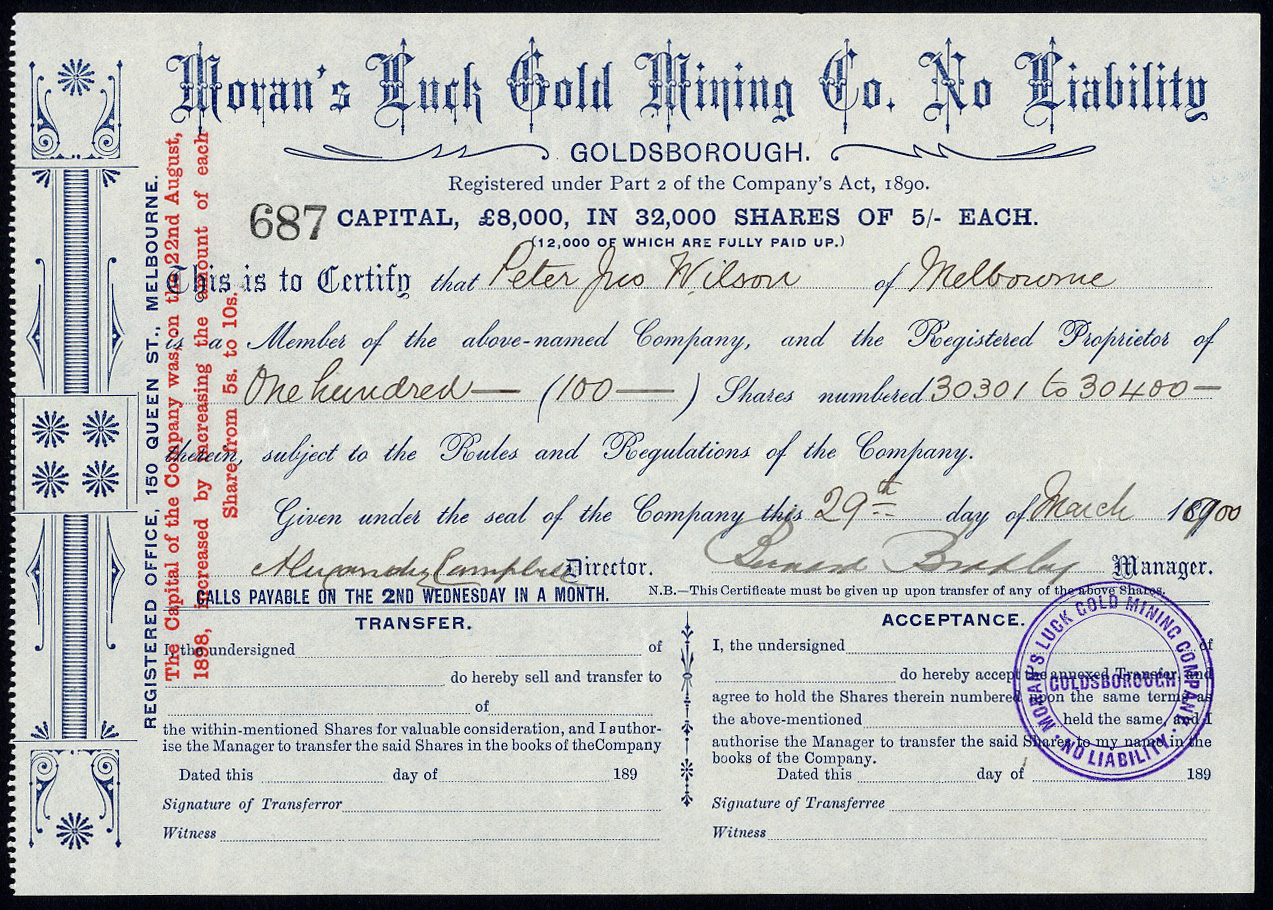 Moran's Luck Gold Mining Co. No Liability
GOLDSBOROUGH.
Registered under Part 2 of the Company's Act, 1890.
687 CAPITAL, £8,000, IN 32,000 SHARES OF 5/- EACH.
(12,000 OF WHICH ARE FULLY PAID UP.)
This is to Certify that Peter Jno Wilson of Melbourne
is a Member of the above-named Company, and the Registered Proprietor of
One hundred — (100 — ) Shares numbered 30301 to 30400 —
therein, subject to the Rules and Regulations of the Company.
Given under the seal of the Company this 29th day of March 1900
Alexander Campbell Director. Bernard Bradley Manager.
CALLS PAYABLE ON THE 2ND WEDNESDAY IN A MONTH.
N.B.—This Certificate must be given up upon transfer of any of the above Shares.
REGISTERED OFFICE, 150 QUEEN ST., MELBOURNE.
The Capital of the Company was, on the 22nd August,
1898, increased by increasing the amount of each
Share from 5s. to 10s.
TRANSFER.
I, the undersigned of
do hereby sell and transfer to
of
the within-mentioned Shares for valuable consideration, and I author-
ise the Manager to transfer the said Shares in the books of the Company
Dated this day of 189
Signature of Transferror
Witness
ACCEPTANCE.
I, the undersigned of
do hereby accept the annexed Transfer, and
agree to hold the Shares therein numbered upon the same terms as
the above-mentioned held the same, and I
authorise the Manager to transfer the said Shares to my name in the
books of the Company.
Dated this day of 189
Signature of Transferee
Witness
MORAN'S LUCK GOLD MINING COMPANY
GOLDSBOROUGH
NO LIABILITY